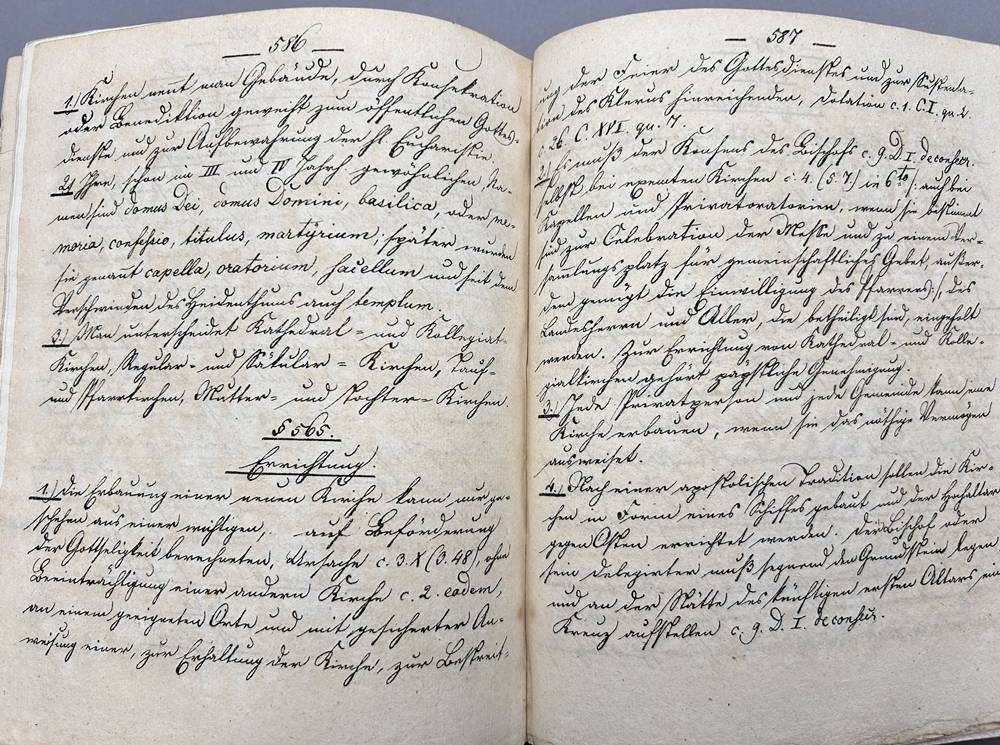 — 586 —
1.) Kirchen nennt man Gebäude, durch Konsekration
oder Benediktion geweiht zum öffentlichen Gottes-
dienste und zur Aufbewahrung der hl. Eucharistie.
2.) Ihre, schon im III und IV Jahrh. gewöhnlichen Na-
men sind domus Dei, domus Domini, basilica, oder me-
moria, confessio, titulus, martyrium; später wurden
sie genannt capella, oratorium, sacellum und seit dem
Verschwinden des Heidenthums auch templum.
3.) Man unterscheidet Kathedral- und Kollegiat-
Kirchen, Regular- und Säkular-Kirchen, Tauf-
und Pfarrkirchen, Mutter- und Tochter-Kirchen.
§ 565.
Errichtung.
1.) Die Erbauung einer neuen Kirche kann nur ge-
schehen aus einer wichtigen, auf Beförderung
der Gottseligkeit berechneten, Ursache c. 3. X (3. 48), ohne
Beeinträchtigung einer andern Kirche c. 2. eodem,
an einem geeigneten Orte und mit gesicherter An-
weisung einer, zur Erhaltung der Kirche, zur Bestreit-
— 587 —
ung der Feier des Gottesdienstes und zur Sustenta-
tion des Klerus hinreichenden, Dotation c. 1. C. I. qu. 2.
c. 26. C. XVI. qu. 7.
2.) Es muß der Konsens des Bischofs c. 9. D. I. de consecr.
selbst bei exemten Kirchen c. 4. (5. 7.) in 6to /: auch bei
Kapellen und Privatoratorien, wenn sie bestimmt
sind zur Celebration der Messe und zu einem Ver-
sammlungsplatz für gemeinschaftliches Gebet, außer-
dem genügt die Einwilligung des Pfarrers :/, des
Landesherrn und Aller, die betheiligt sind, eingeholt
werden. Zur Errichtung von Kathedral- und Kolle-
gialkirchen gehört papstliche Genehmigung.
3.) Jede Privatperson und jede Gemeinde kann eine
Kirche erbauen, wenn sie das nöthige Vermögen
ausweiset.
4.) Nach einer apostolischen Tradition sollen die Kir-
chen in Form eines Schiffes gebaut und der Hochaltar
gegen Osten errichtet werden. Der Bischof oder
sein Delegirter muß segnend den Grundstein legen
und an der Stätte des künftigen ersten Altars ein
Kreuz aufstellen c. 9. D. I. de consecr.